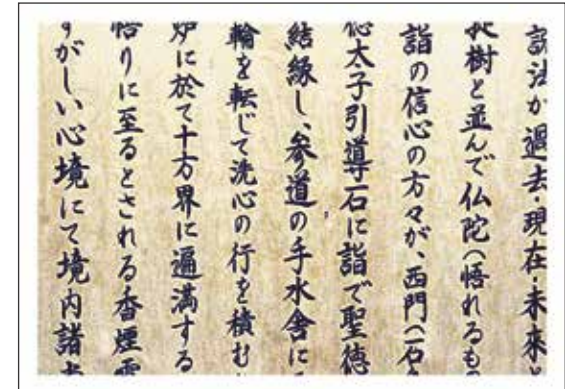 説法が過去・現在・未来と
提樹と並んで仏陀(悟れるも
詣の信心の方々が、西門(石
徳太子引導石に詣で聖徳
結縁し、参道の手水舎に
輪を転じて洗心の行を積む
炉に於て十方界に遍満する
悟りに至るとされる香煙
すがしい心境にて境内諸